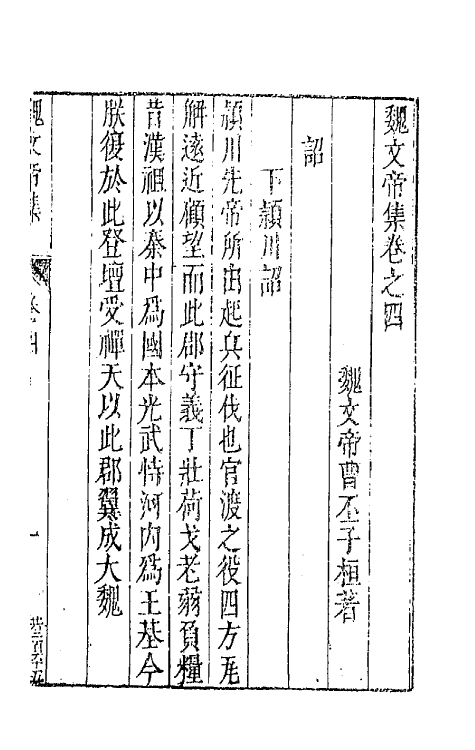 魏文帝集卷之四
魏文帝曹丕子桓著
詔
下潁川詔
潁川先帝所由起兵征伐也官渡之役四方瓦
解遠近顧望而此郡守義丁壯荷戈老弱負糧
昔漢祖以秦中爲國本光武恃河内爲王基今
朕復於此登壇受禪天以此郡翼成大魏
魏文帝集
卷四
一